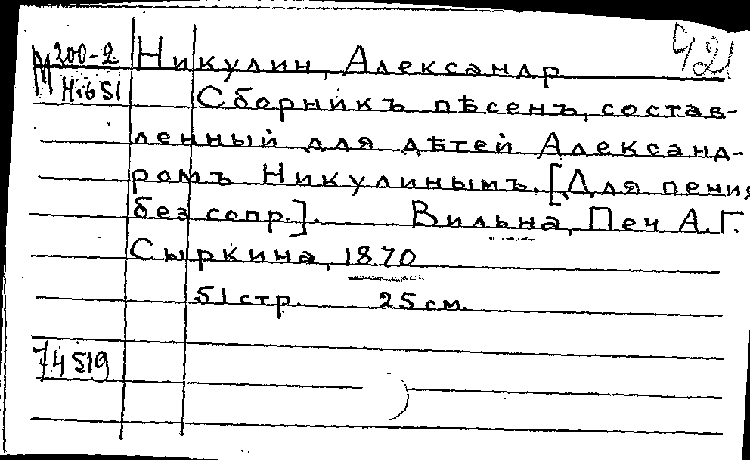 М200-2 Никулин, Александр 421
Н651 Сборникъ пѣсенъ, состав-
ленный для дѣтей Александ-
ромъ Никулинымъ. [Для пения
без сопр.]. Вильна, Печ А.Г.
Сыркина, 1870
51 стр. 25 см.
74519